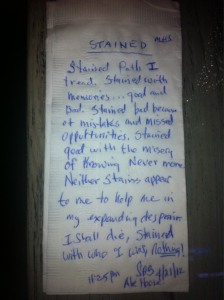 STAINED
Stained Path I
tread. Stained with
memories... good and
Bad. Stained bad because
of mistakes and missed
oppurtunities. Stained
good with the misery
of Knowing Never more.
Neither Stains appear
to me to help me in
my expanding despair.
I shall die, Stained
with who I was, Nothing!
11:25pm
Ale House